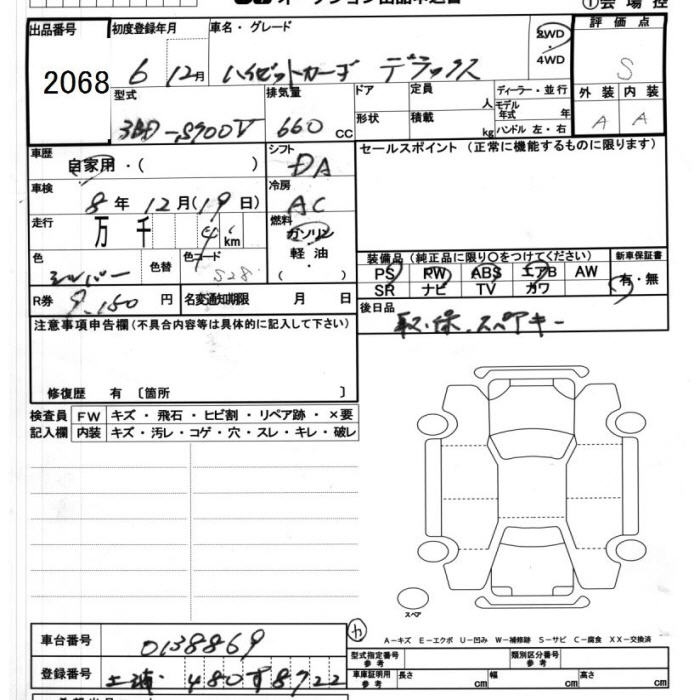 オークション出品申込書
①会場控
出品番号 初度登録年月 車名・グレード 2WD・4WD 評価点
2068 6 12月 ハイゼットカーゴ デラックス S
型式 排気量 ドア 定員 人 ディーラー・並行 外装 内装
3BD-S700V 660 cc 形状 積載 kg モデル年式 年 ハンドル 左・右 A A
車歴 自家用・( ) シフト DA セールスポイント(正常に機能するものに限ります)
車検 8年12月(19日) 冷房 AC
走行 万 千 4 km 燃料 ガソリン・軽油・( )
色 シルバー 色替 色コード S28
装備品(純正品に限り○をつけてください) 新車保証書
PS PW ABS エアB AW 有・無
SR ナビ TV カワ
R券 9,150円 名変通知期限 月 日
後日品 取・保、スペアキー
注意事項申告欄(不具合内容等は具体的に記入して下さい)
修復歴 有〔箇所 〕
検査員 FW キズ・飛石・ヒビ割・リペア跡・×要
記入欄 内装 キズ・汚レ・コゲ・穴・スレ・キレ・破レ
スペア
車台番号 0138869
カ
A-キズ E-エクボ U-凹み W-補修跡 S-サビ C-腐食 XX-交換済
型式指定番号 参考 類別区分番号 参考
登録番号 土浦・480す8722
車庫証明用 参考 長さ cm 幅 cm 高さ cm